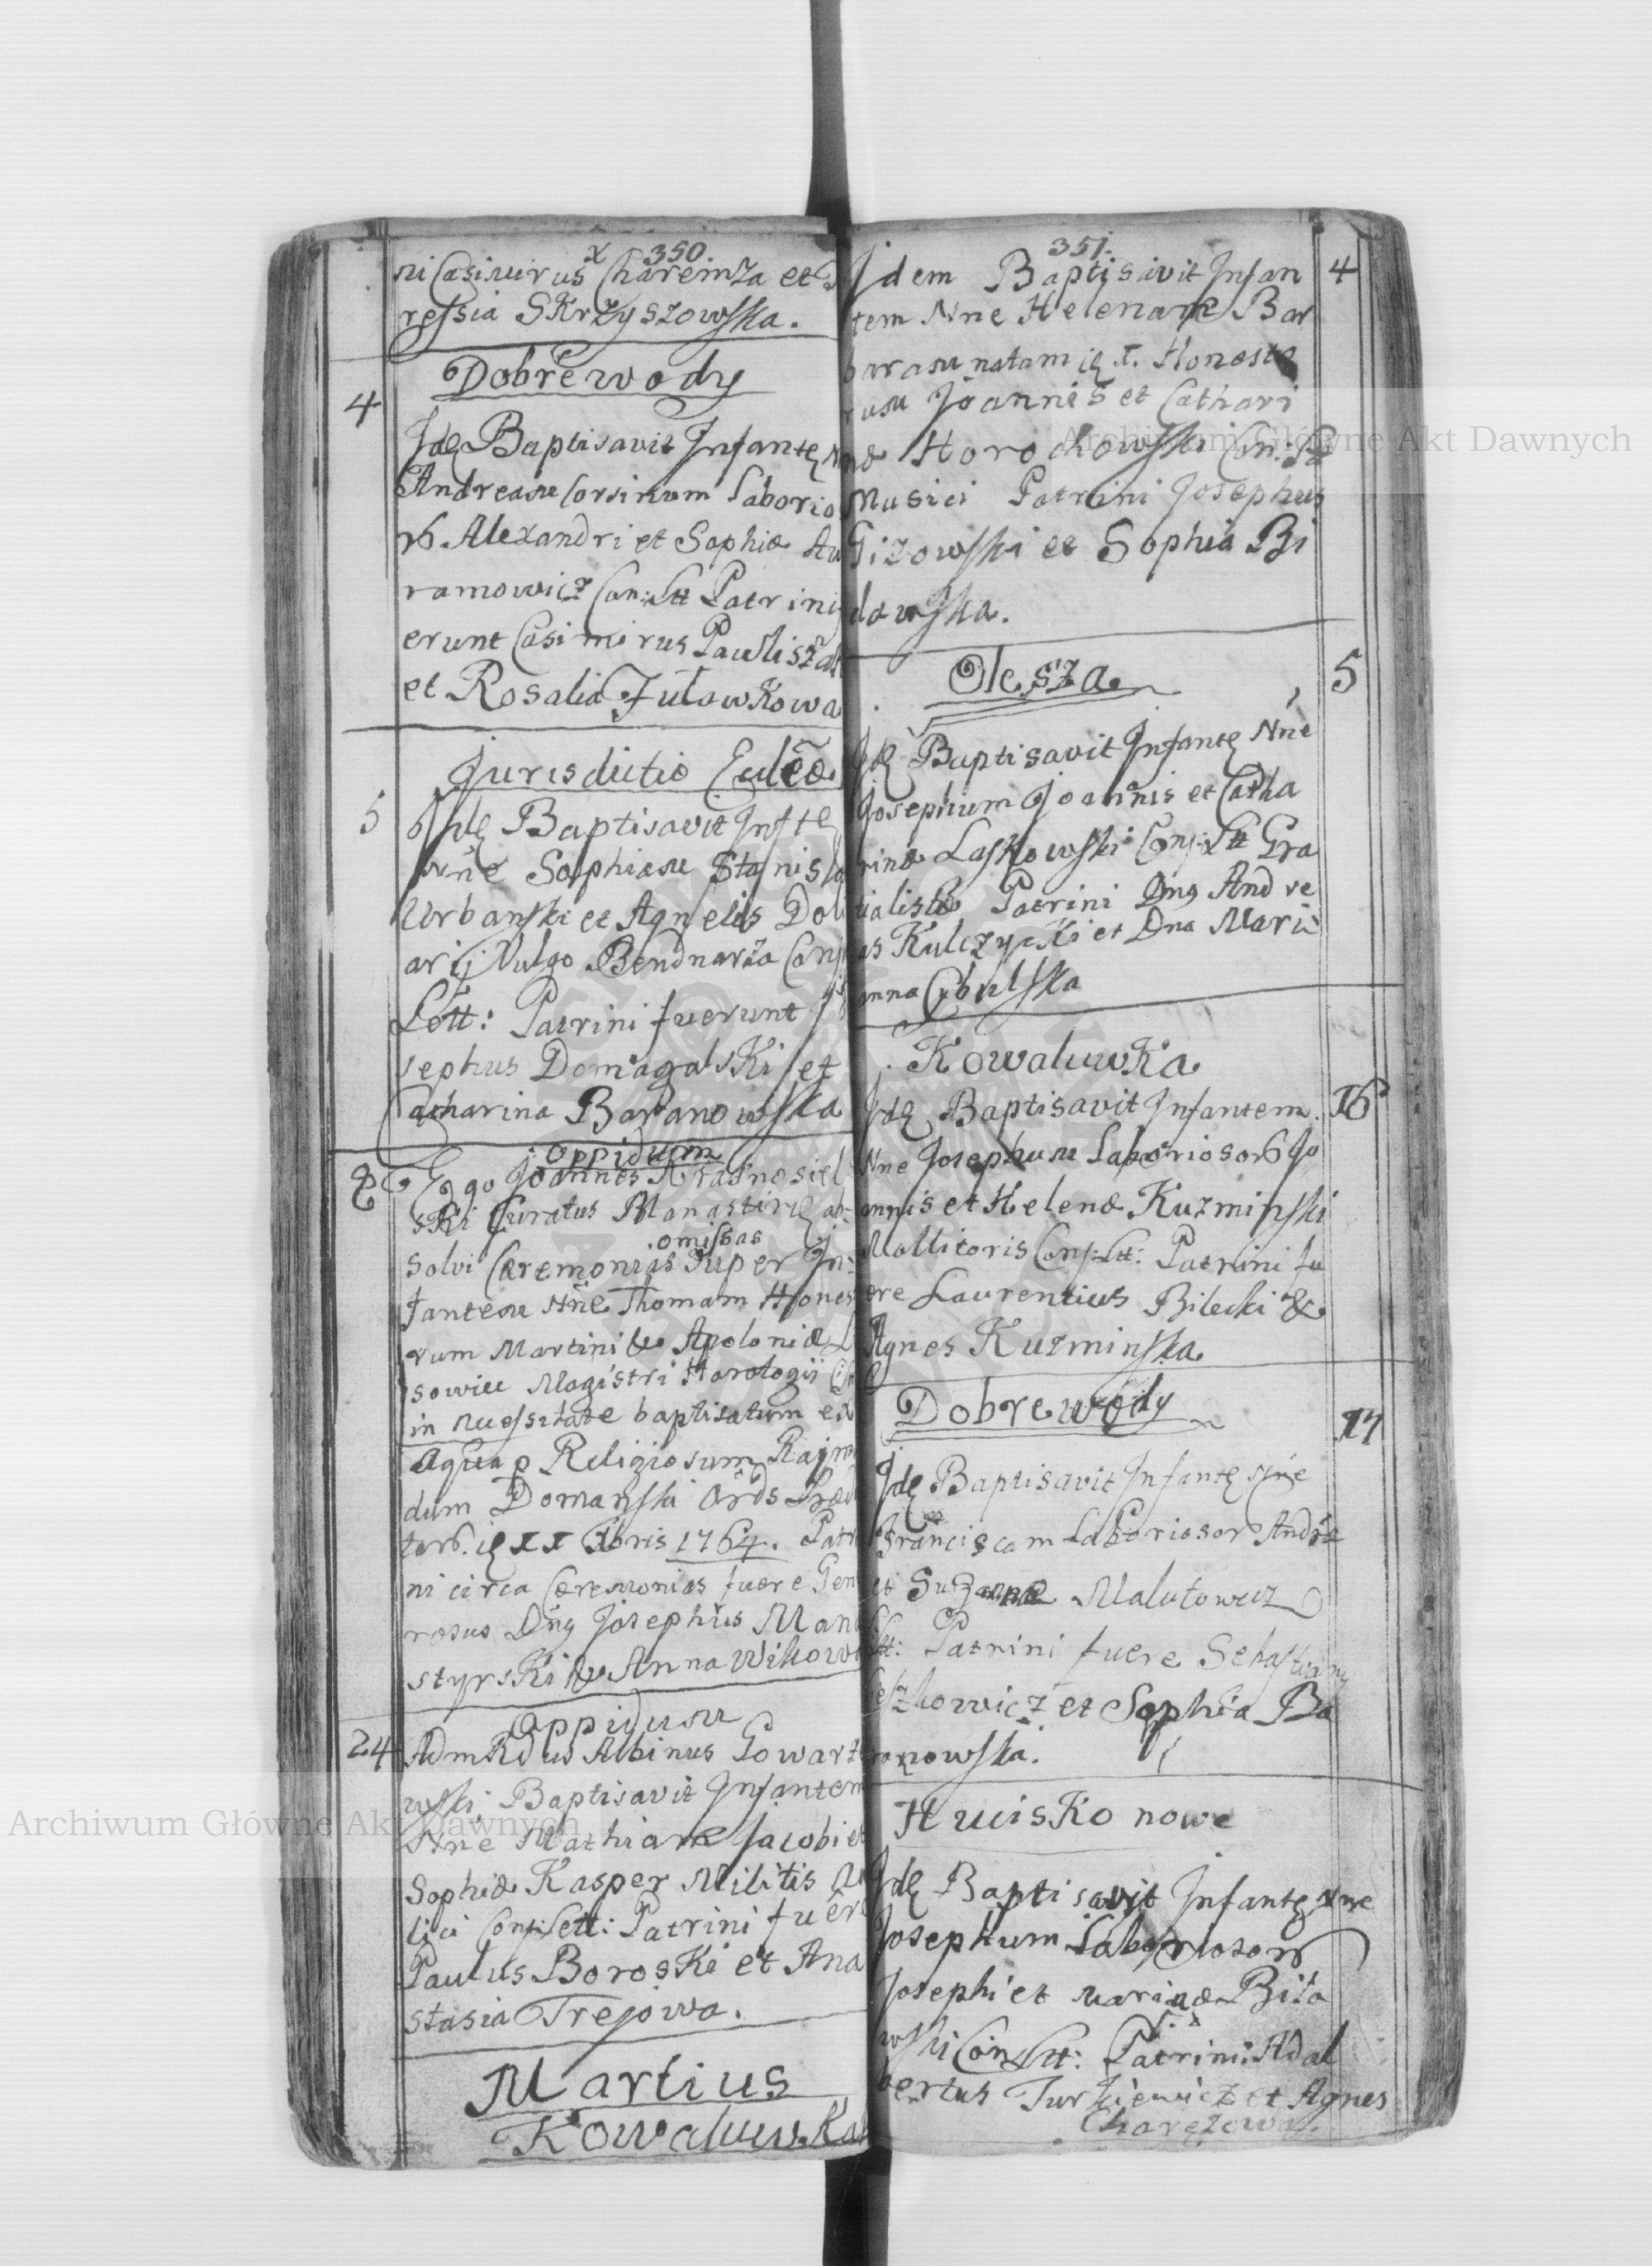 350.
ni Casimirus Charemza et
ressia SKrzyszowska.
Dobrewody
4
Jdē Baptisavit Jnfantē
Andream Corsinum Laborio
Alexandri et Sophiæ Au
ramowicz Con: Ltt Patrini
erunt Casimirus Pauliszak
et Rosalia Zulawkowa
Jurisdictio Ecclēæ
5
Jdē Baptisavit Jnftē
Nñe Sophiam Stanisla
Urbanski et Agnetis Doli
arij Vulgo Bendnarza Conj
Lett: Patrini fuerunt Jo
sephus DomagalsKi et
Catharina Baranowska
oppidum
8
Ego Joannes Krasnosiel
sKi Curatus Monastiriē ab
omissas
solvi Cæremonias super Jn:
fantem Nñe Thomam Hones
rum Martini & Apoloniæ L
sowicz Magistri Horologii
in necessitate baptisatum ex
Aqua p Religiosum Rajm
dum Domanski Ords Præd
XX Xbris 1764. Patr
ni circa Cæremonias fuere Gen
rosus Dnus Josephus Mana
styrsKi & Anna Wikow
oppidum
24
AdmRdus Albinus Gowarz
wski Baptisavit Jnfantem
Nne Mathiam Jacobi et
Sophiæ Kasper Militis
lici Conj: Lett: Patrini fuere
Paulus BorosKi et Ana
stasia Trejowa.
Martius
KowaluwKa
351.
Jdem Baptisavit Jnfan
4
tem Nne Helenam Bar
baram natam Honesto
rum Joannis et Cathari
næ Horochowski Con:
Musici Patrini Josephus
Gizowski et Sophia Bi
dowska.
Olesza
5
Jdē Baptisavit Jnfantē Nne
Josephum Joannis et Catha
rinæ Laskowski Conj: Ltt Gra
cialistæ Patrini Dnus Andre
as KulczycKi et Dna Mari
anna Cybulska
KowaluwKa
16
Jdē Baptisavit Jnfantem
Nne Josephum Laboriosor Jo
annis et Helenæ Kuzminski
Mollitoris Conj: Ltt: Patrini fu
ere Laurentius Bilecki &
Agnes Kuzminska
Dobrewody
17
Jdē Baptisavit Jnfantē Nne
Franciscam Laboriosor Andreæ
et Suzannæ Malutowicz
Ltt: Patrini fuere Sebastianus
Leszkowicz et Sophia Ba
ranowska.
HuisKo nowe
Jdē Baptisavit Jnfantē Nne
Josephum Laboriosor
Josephi et Marinæ Bila
wski Con Ltt: Patrini Adal
bertus Jurkiewicz et Agnes
Charęzowa.
Archiwum Główne Akt Dawnych
Archiwum Główne Akt Dawnych